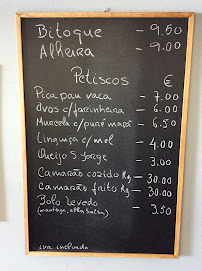 Bitoque - 9.50
Alheira - 9.00
Petiscos €
Pica pau vaca - 7.00
Ovos c/farinheira - 6.00
Murcela c/puré maçã - 6.50
Linguiça c/mel - 4.00
Queijo S. Jorge - 3.00
Camarão cozido Kg - 30.00
Camarão frito Kg - 30.00
Bolo Levedo - 3.50
(manteiga, alho, salsa)
iva incluido